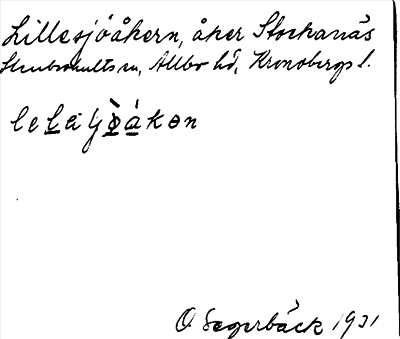 Lillesjöåkern, åker Stockanäs
Stenbrohults sn, Allbo hd, Kronobergs l.
O Segerbäck 1931